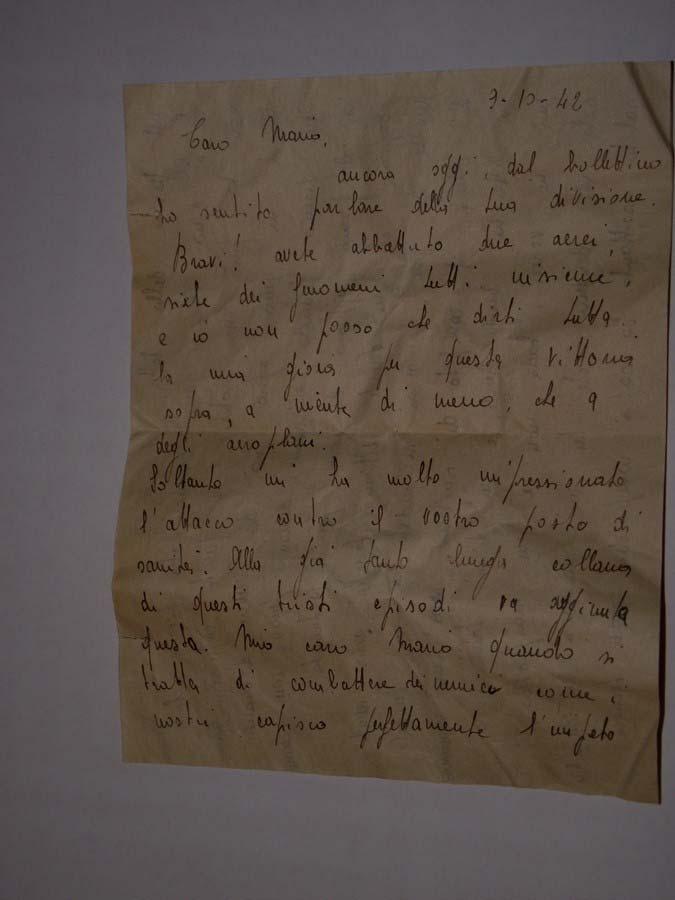 9-10-42
Caro Mario,
ancora oggi, dal bollettino
ho sentito parlare della tua divisione.
Bravi! avete abbattuto due aerei,
siete dei fenomeni tutti insieme,
e io non posso che dirti tutta
la mia gioia per questa vittoria
sopra, a niente di meno, che a
degli aeroplani.
Soltanto mi ha molto impressionato
l'attacco contro il vostro posto di
sanità. Alla già tanto lunga collana
di questi tristi episodi va aggiunta
questa. Mio caro Mario quando si
tratta di combattere dei nemici come i
nostri capisco perfettamente l'impeto